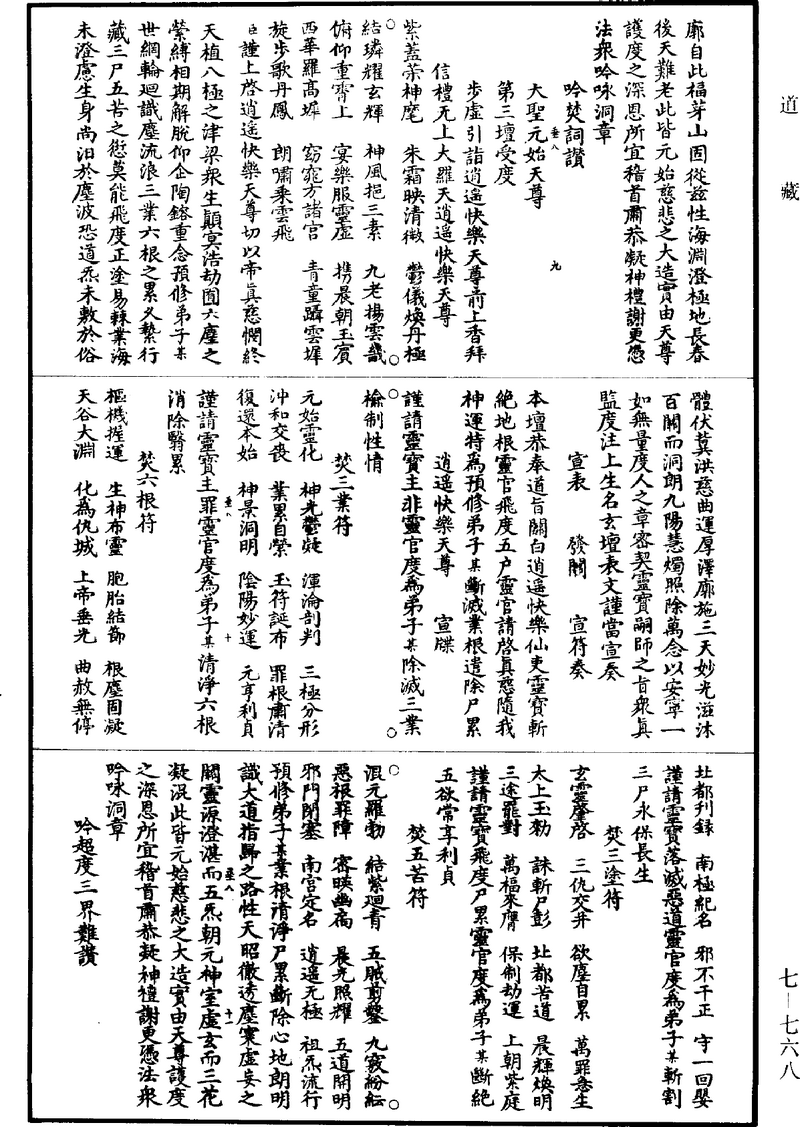 道藏
廓自此福芽山固從玆性海淵澄極地長春
後天難老此皆元始慈悲之大造實由天尊
護度之深恩所宜稽首肅恭凝神禮謝更憑
法衆吟咏洞章
吟焚詞讃
大聖元始天尊
第三壇受度
步虛引詣逍遥快樂天尊前上香拜
信禮无上大羅天逍遥快樂天尊
紫蓋荣神麾 朱霜映清微 鬱儀煥丹極
結璘耀玄輝 神風挹三素 九老揚雲璣
俯仰重霄上 宴樂服靈虛 携晨朝玉賓
西華羅髙墀 窈窕方諸宫 青童躡雲墀
旋步歌丹鳳 朗嘯乗雲飛
臣謹上啓逍遥快樂天尊切以帝眞慈憫終
天植八極之津梁衆生顛冥浩劫囿六塵之
縈縛相期解脫仰企陶鎔重念預修弟子某
世網輪廻識塵流浪三業六根之累久縶行
藏三尸五苦之愆莫能飛度正塗易棘業海
未澄慮生身尚汩於塵波恐道炁未敷於俗
體伏冀洪慈曲運厚澤廓施三天妙光滋沐
百關而洞朗九陽慧燭照除萬念以安寧一
如無量度人之章密契靈寶嗣師之旨衆眞
監度注上生名玄壇表文謹當宣奏
宣表 發關 宣符奏
本壇恭奉道旨關白逍遥快樂仙吏靈寶斬
絶地根靈官飛度五户靈官請啓眞慈隨我
神運特爲預修弟子某斷滅業根遣除尸累
逍遥快樂天尊 宣牒
謹請靈寶主非靈官度爲弟子某除滅三業
檢制性情
焚三業符
元始靈化 神光鬱凝 渾淪剖判 三極分形
沖和交喪 業累自縈 玉符誕布 罪根肅清
復還本始 神景洞明 陰陽妙運 元亨利貞
謹請靈寶主罪靈官度爲弟子某清淨六根
消除翳累
焚六根符
樞機握運 生神布靈 胞胎結節 根塵固凝
天谷大淵 化爲仇城 上帝垂光 曲赦無停
北都刊録 南極紀名 邪不干正 守一回嬰
謹請靈寶落滅惡道靈官度爲弟子某斬割
三尸永保長生
焚三塗符
玄靈肇啓 三仇交并 欲塵自累 萬罪惫生
太上玉勑 誅斬尸彭 北都苦道 晨輝煥明
三途罷對 萬福來膺 保制劫運 上朝紫庭
謹請靈寶飛度尸累靈官度爲弟子某斷絶
五欲常享利貞
焚五苦符
混元羅勃 結紫迴青 五賊剪鑿 九竅紛紜
惡根罪障 密映幽扃 晨光照耀 五道開明
邪門閉塞 南宫定名 逍遥无極 祖炁流行
預修弟子某業根清淨尸累斷除心地朗明
識大道指歸之路性天昭徹透塵寰虛妄之
關靈源澄湛而五炁朝元神室虛玄而三花
凝混此皆元始慈悲之大造實由天尊護度
之深恩所宜稽首肅恭凝神禮謝更憑法衆
吟咏洞章
吟超度三界難讃
七—七六八